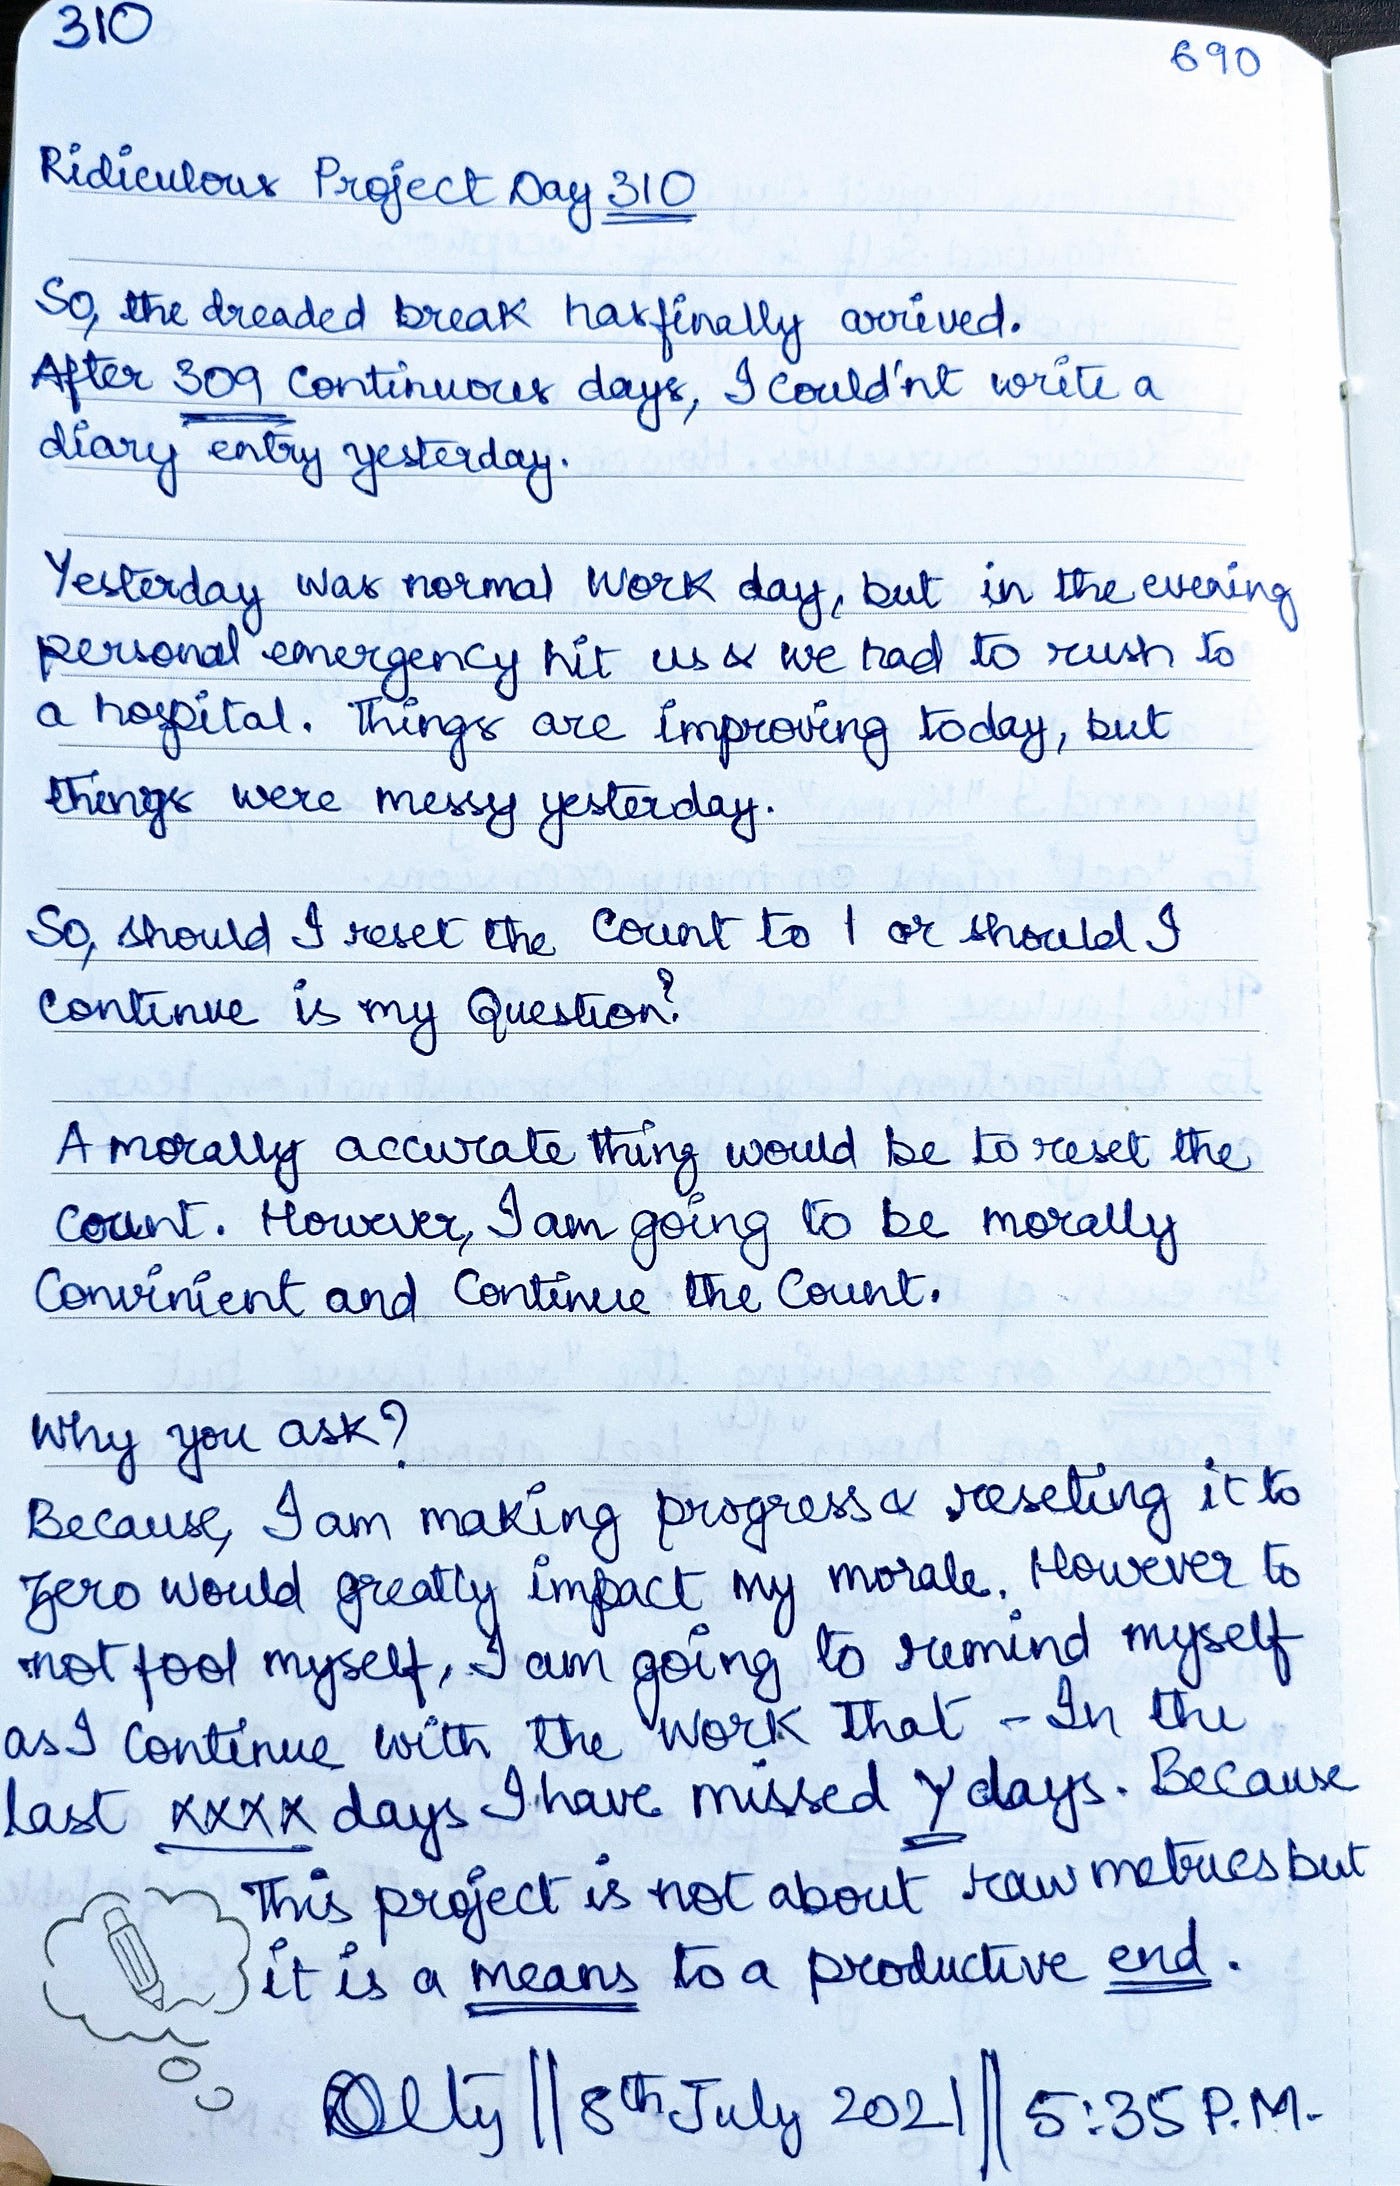 310
690
Ridiculous Project Day 310
So, the dreaded break has finally arrived.
After 309 continuous days, I could'nt write a
diary entry yesterday.
Yesterday was normal work day, but in the evening
personal emergency hit us & we had to rush to
a hospital. Things are improving today, but
things were messy yesterday.
So, should I reset the count to 1 or should I
continue is my Question?
A morally accurate thing would be to reset the
count. However, I am going to be morally
Convinient and Continue the Count.
Why you ask?
Because, I am making progress & reseting it to
zero would greatly impact my morale. However to
not fool myself, I am going to remind myself
as I continue with the work that - In the
last xxxx days I have missed Y days. Because
This project is not about raw metrics but
it is a means to a productive end.
|| 8th July 2021 || 5:35 P.M.